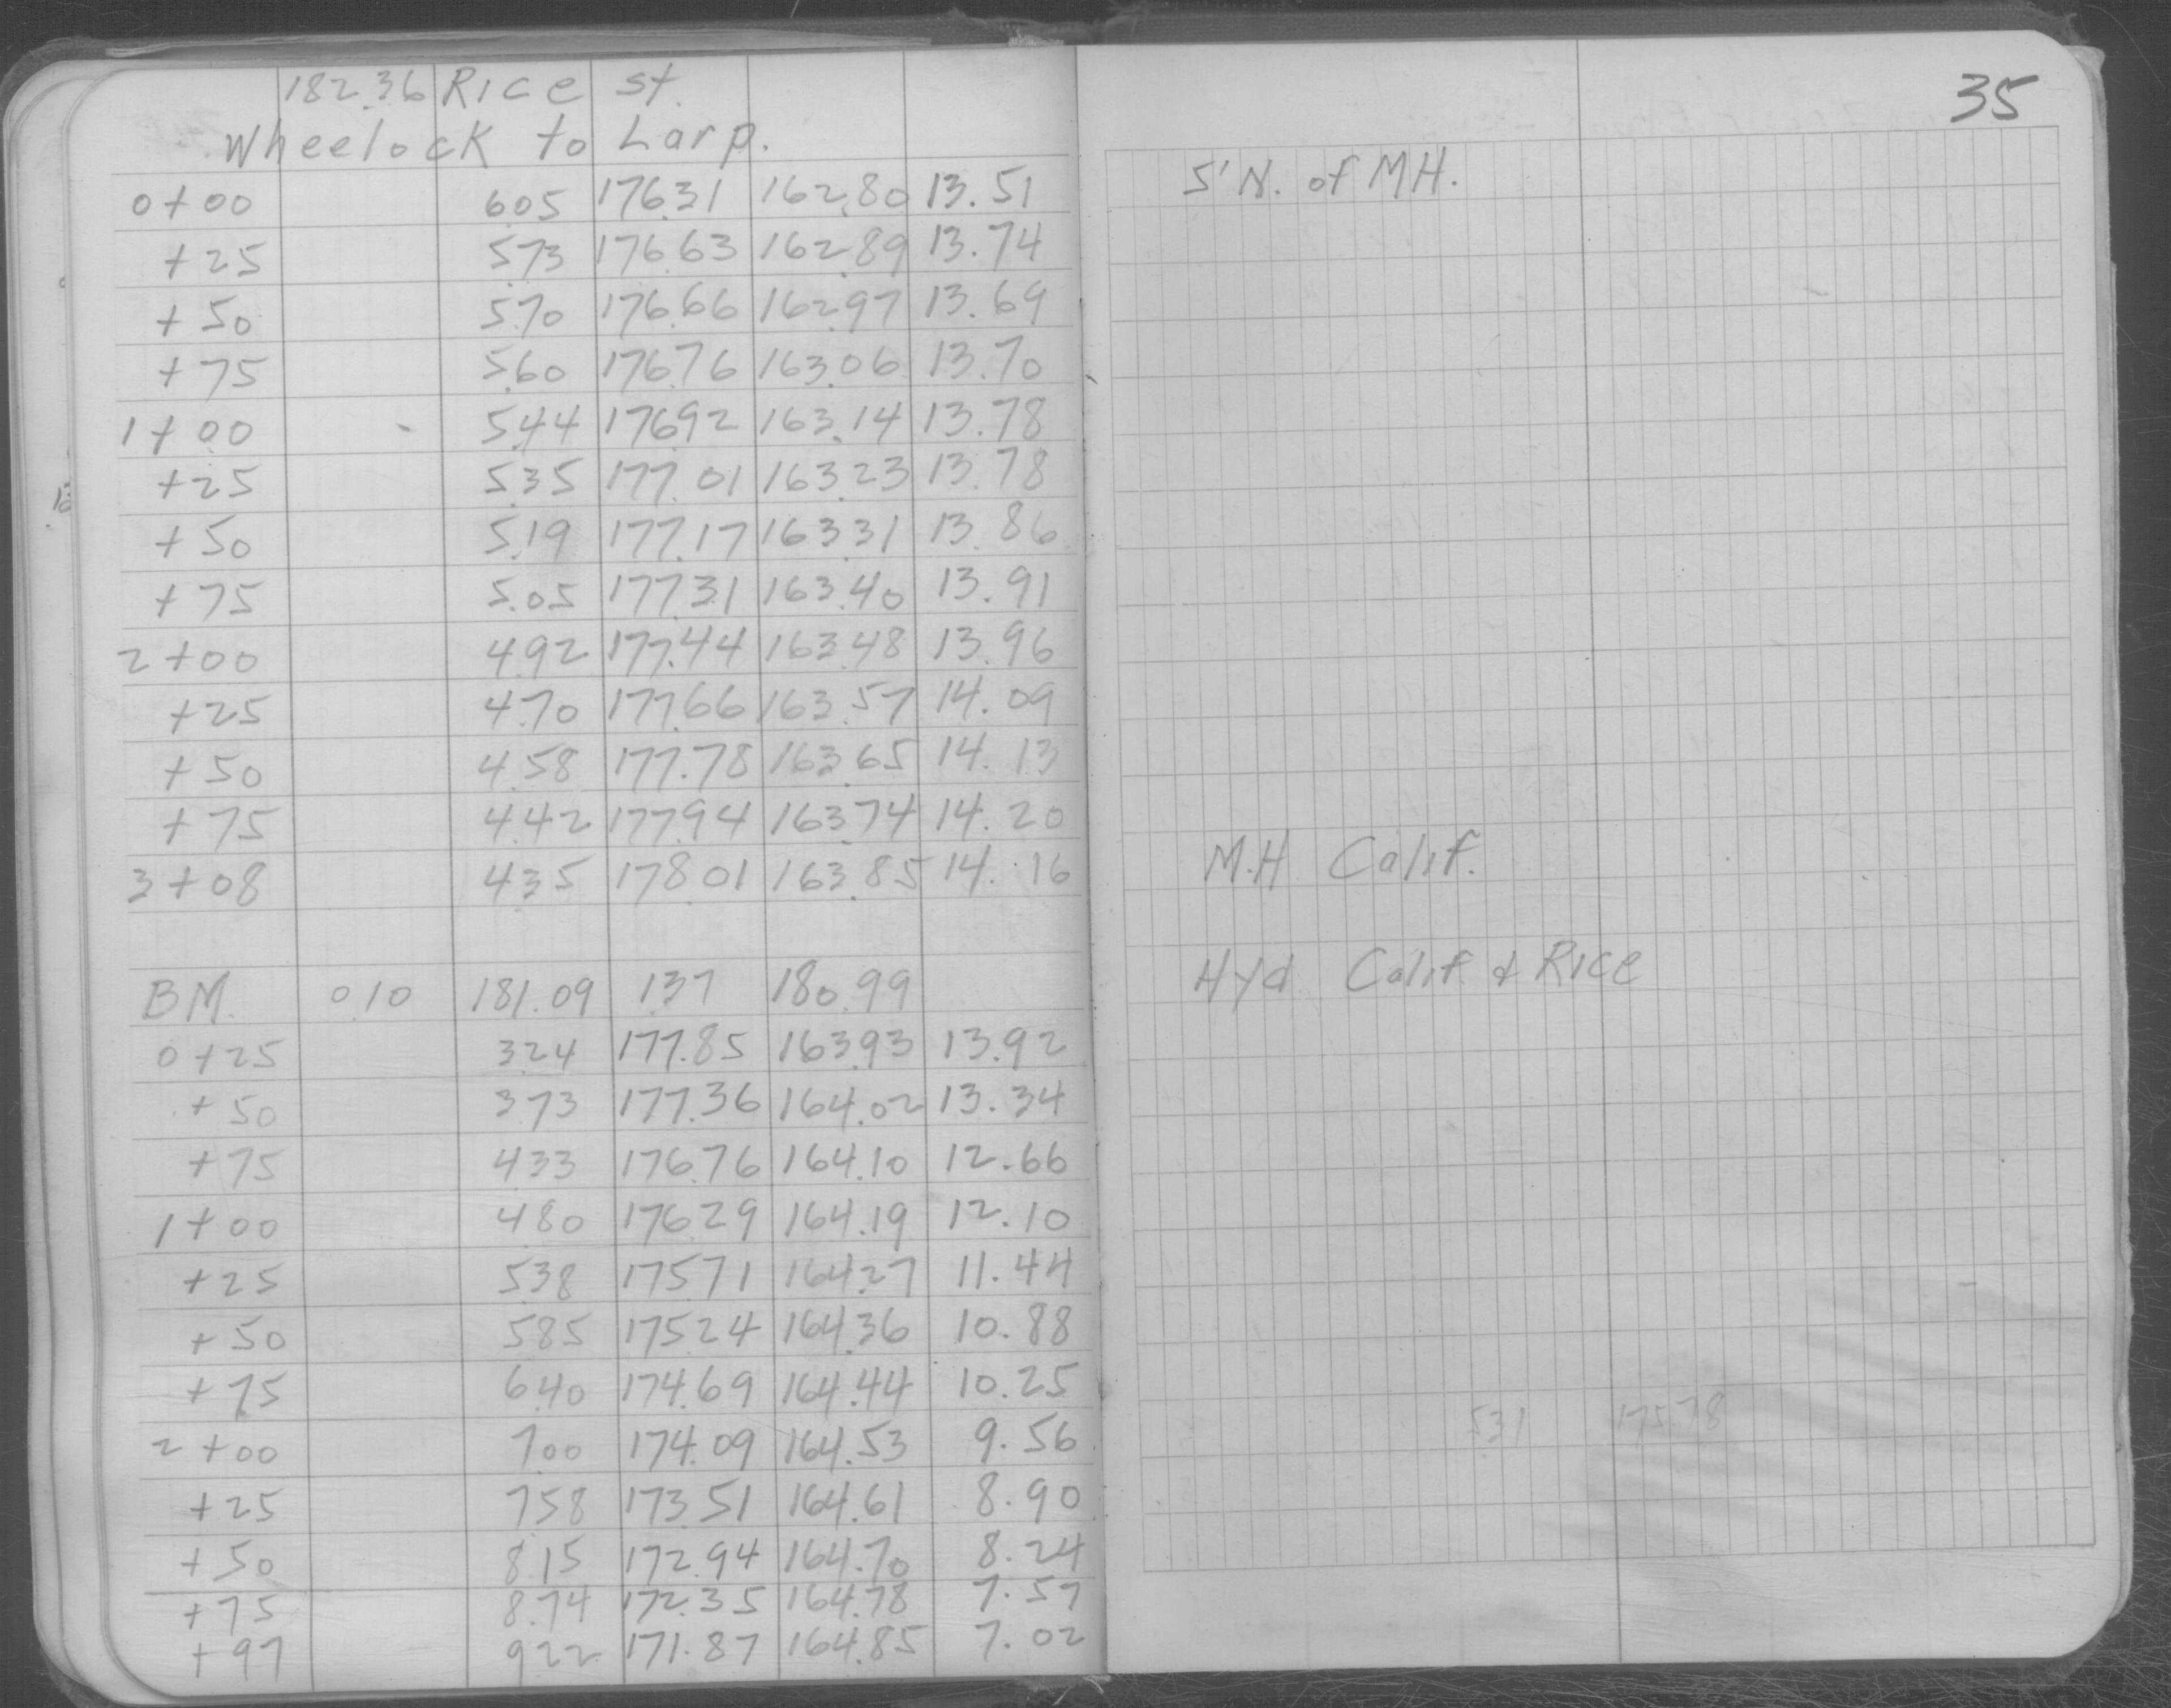 182.36 Rice st.
Wheelock to Larp.
0+00 605 176.31 162.80 13.51
+25 5.73 176.63 162.89 13.74
+50 5.70 176.66 162.97 13.69
+75 5.60 176.76 163.06 13.70
1+00 5.44 176.92 163.14 13.78
+25 5.35 177.01 163.23 13.78
+50 5.19 177.17 163.31 13.86
+75 5.05 177.31 163.40 13.91
2+00 4.92 177.44 163.48 13.96
+25 4.70 177.66 163.57 14.09
+50 4.58 177.78 163.65 14.13
+75 4.42 177.94 163.74 14.20
3+08 4.35 178.01 163.85 14.16
BM. 0.10 181.09 1.37 180.99
0+25 3.24 177.85 163.93 13.92
+50 3.73 177.36 164.02 13.34
+75 4.33 176.76 164.10 12.66
1+00 4.80 176.29 164.19 12.10
+25 5.38 175.71 164.27 11.44
+50 5.85 175.24 164.36 10.88
+75 6.40 174.69 164.44 10.25
2+00 7.00 174.09 164.53 9.56
+25 7.58 173.51 164.61 8.90
+50 8.15 172.94 164.70 8.24
+75 8.74 172.35 164.78 7.57
+97 9.22 171.87 164.85 7.02
35
5' N. of MH.
M.H Calif.
Hyd Calif. & Rice
5.31 175.78